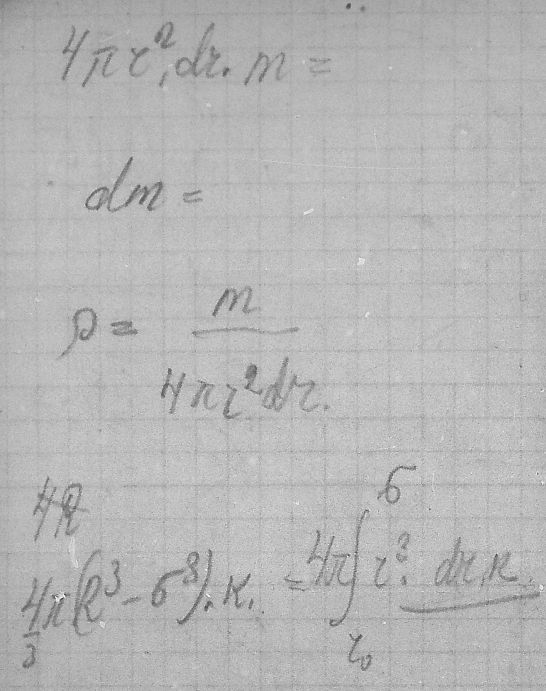 4πr², dr. m =
dm =
ρ = m / 4πr²dr.
4π
4/3 π(R³ - σ³). к. = 4π ∫_{r₀}^{σ} r². dr. к